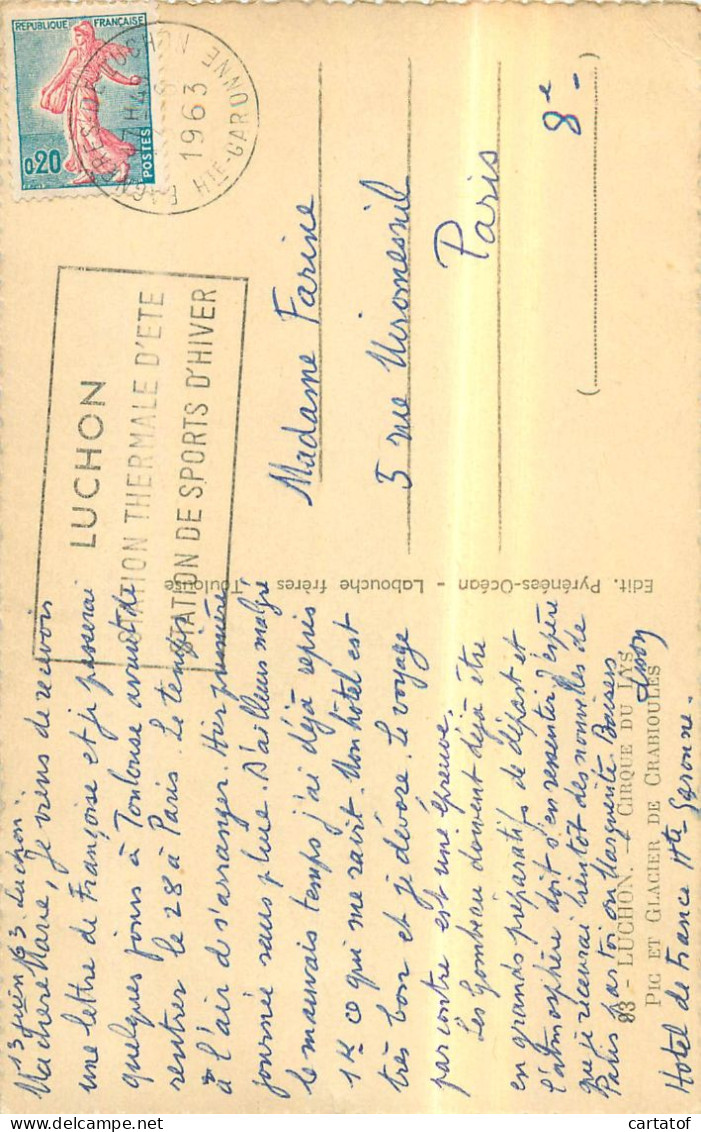 13 juin 63. Luchon.
Ma chère Marie, je viens de recevoir
une lettre de Françoise et je passerai
quelques jours à Toulouse avant de
rentrer le 28 à Paris. Le temps
à l'air de s'arranger. Hier première
journée sans pluie. D'ailleurs malgré
le mauvais temps j'ai déjà repris
1K ce qui me ravit. Mon hôtel est
très bon et je dévore. Le voyage
par contre est une épreuve.
Les Gombeau doivent déjà être
en grands préparatifs de départ et
l'atmosphère doit s'en ressentir. J'espère
que je recevrai bientôt des nouvelles de
Paris par toi ou Marguerite. Baisers
Hotel de France Hte Garonne.
93 - LUCHON. - CIRQUE DU LYS
PIC ET GLACIER DE CRABIOULES
Edit. Pyrénées-Océan - Labouche frères, Toulouse
LUCHON
STATION THERMALE D'ETE
STATION DE SPORTS D'HIVER
REPUBLIQUE FRANÇAISE
0,20
POSTES
BAGNERES-DE-LUCHON
1963
HTE-GARONNE
Madame Farine
5 rue Miromesnil
Paris
8e
(                    )
cartatof